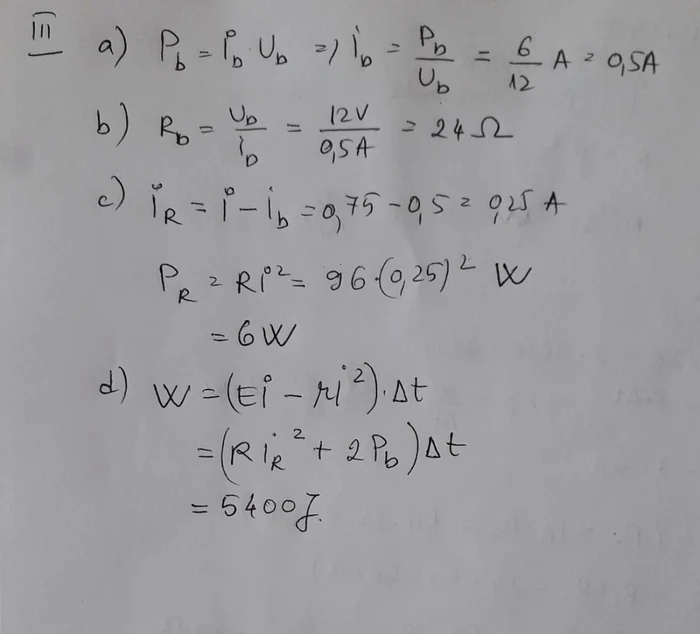 III a) P_b = i_b · U_b => i_b = P_b/U_b = 6/12 A = 0,5A
b) R_b = U_b/i_b = 12V/0,5A = 24 Ω
c) i_R = i - i_b = 0,75 - 0,5 = 0,25 A
P_R = Ri² = 96·(0,25)² W
= 6W
d) W = (Ei - ri²)·Δt
= (R i_R² + 2P_b)Δt
= 5400J.